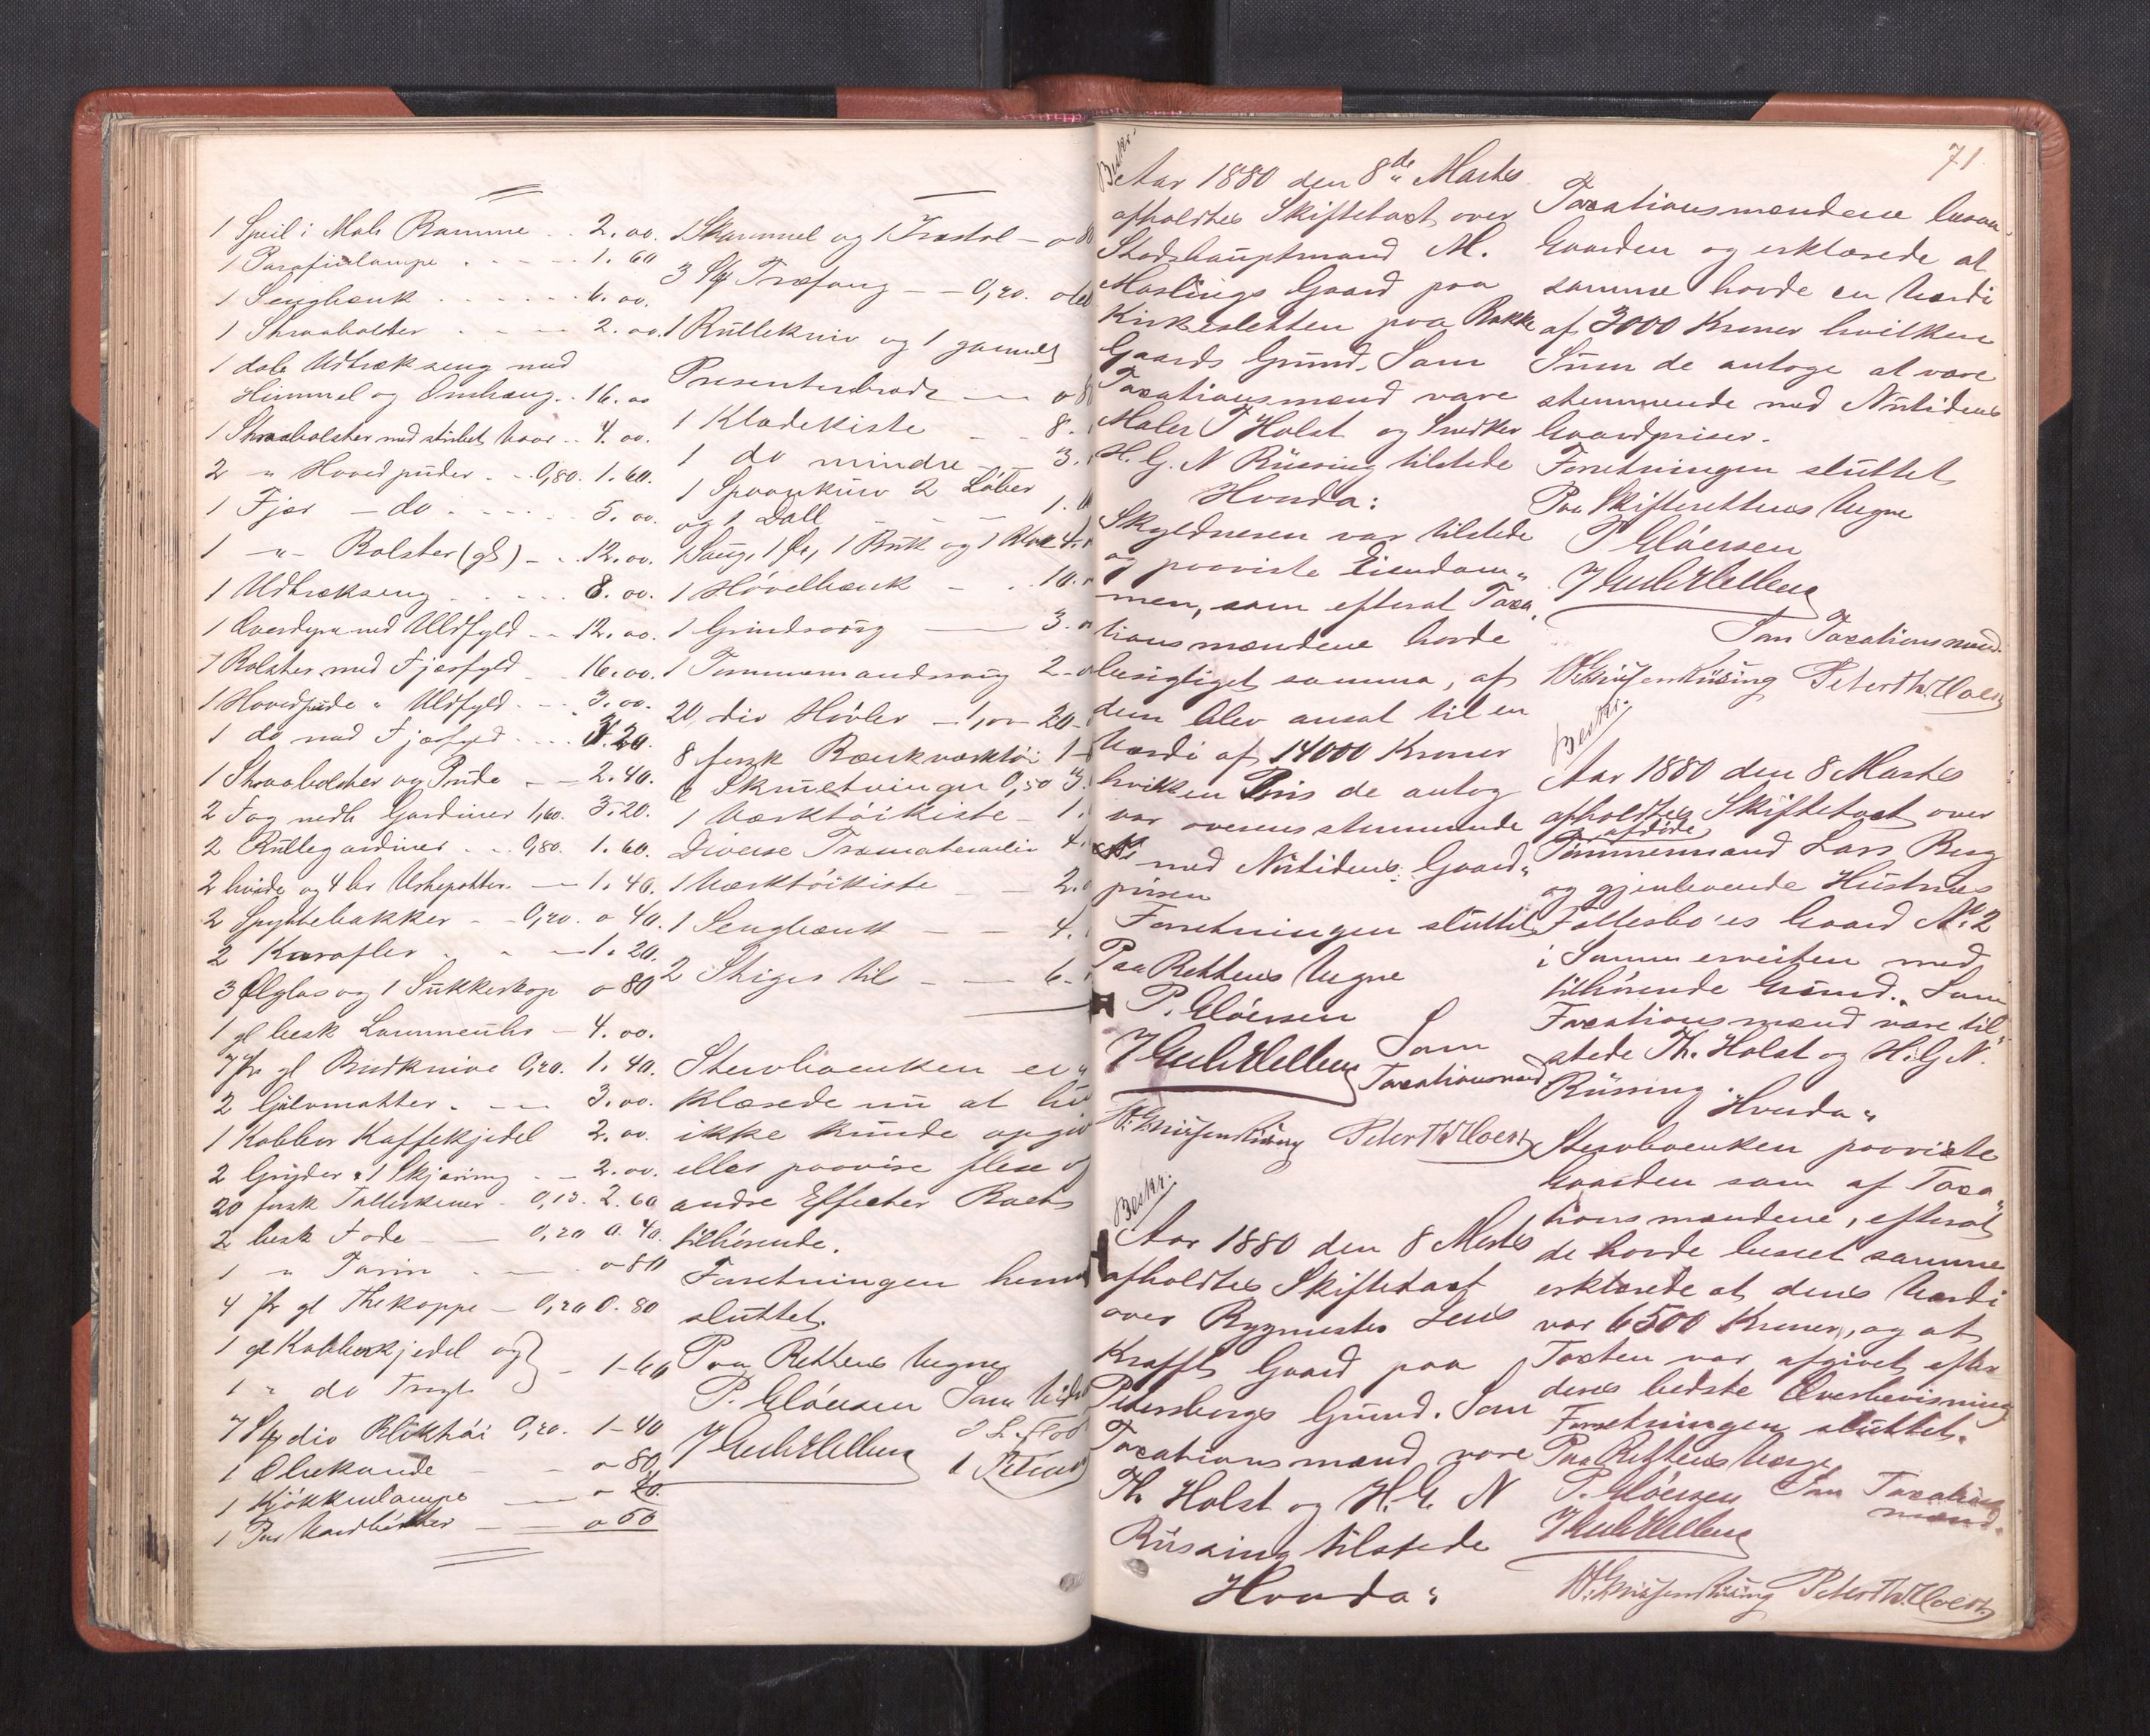 1 Speil i Mah Ramme . . 2.00.
1 Parafinlampe . . . . 1.60
1 Sengbænk . . . . . . 6.00.
1 Straabolster . . . . 2.00.
1 dob Udtrækseng med
Himmel og Omhæng . . 16.00
1 Straabolster med stribet Vaar . . 4.00.
2 " Hovedpuder . . 0,80. 1.60.
1 Fjær - do . . . . . 5.00.
1 -"- Bolster (gl) - . . 12.00.
1 Udtrækseng . . . . . 8.00.
1 Overdyne med Uldfyld . . 12.00.
1 Bolster med Fjærfyld . . 16.00.
1 Hovedpude " Uldfyld . . 3.00.
1 do med Fjærfyld . . . 3.20.
1 Straabolster og Pude . - 2.40.
2 Fag nedh Gardiner 1,60. 3.20.
2 Rullegardiner . . 0,80. 1.60.
2 hvide og 4 br Urtepotter. - 1.40.
2 Spyttebakker - - 0,20. 0 40.
2 Karafler . . . - 1.20.
3 Ølglas og 1 Sukkerkop 0 80
1 gl besk Lommeuhr - 4.00.
7 Pr gl Bordknive 0,20. 1.40.
2 Gulvmatter . . - 3.00.
1 Kobber Kaffekjedel 2.00.
2 Gryder & 1 Skjæring . - 2.00.
20 forsk Tallerkener . 0,13. 2.60
2 besk Fade - - 0,20 0.40.
1 " Tarin . - . 0 80
4 Pr gl Thekopper - 0,20 0.80
1 gl Kobberkjedel og
1 " do Tragt - 1-60
7 Stk div Bliktøi 0,20. 1-40
1 Oliekande - - 0 80
1 Kjøkkenlampe - 0 40.
1 Par Vandbøtter - - 0 60
1 Skammel og 1 Træstol - 0 80
3 Stk Træfang - - 0,20. 0 60
1 Rullekniv og 1 gammelt
Presenterbræt - - 0 80
1 Klædekiste - - 8.
1 do mindre - 3.
1 Spaankurv 2 Løber
og 1 Dall - - - 1.
1 Saug, 1 Øx, 1 Buk og 1 4.
1 Høvelbænk - . 10.
1 Grindsaug - 3.
1 Tommermandssaug 2-
20 div Høvler - 1,00 20-
8 forsk Bænkværktøi 1-
Skruetvinger 0,50 3.
1 Værktøikiste - 1.
Diverse Træmaterialier 4.
1 Værktøikiste - - 2.
1 Sengbænk - - 4.
2 Stiger til - - 6.
Stervboenken er"
klærede nu at hun
ikke kunde opgive
eller paavise flere og
andre Effecter Boets
tilhørende.
Forretningen hermed
sluttet.
Paa Rettens Vegne
P. Gløersen Som Vidner
71.
Beskr.
Aar 1880 den 8de Marts
afholdtes Skiftetaxt over
Stadshauptmand M.
Mastings Gaard paa
Kirkesletten paa Bakke
Gaards Grund. Som
Taxationsmænd vare
Maler T Holst og Snedker
H. G. N Rüssing tilstede
Hvorda:
Skyldneren var tilstede
og paaviste Eiendom"
men, som efterat Taxa
tionsmændene havde
besigtiget samme, af
dem blev ansat til en
Værdi af 14000 Kroner
hvilken Pris de antog
var overensstemmende
med Nutidens Gaard"
prisen
Forretningen sluttet
Paa Rettens Vegne
P. Gløersen
Som
Taxationsmænd
Beskr.
Aar 1880 den 8 Marts
afholdtes Skiftetaxt
over Bygmester Jens
Krafft Gaard paa
Petersborgs Grund. Som
Taxationsmænd vare
Th. Holst og H. G. N
Rüssing tilstede
Hvorda:
Taxationsmændene besaa
Gaarden og erklærede at
samme havde en Værdi
af 3000 Kroner hvilken
Sum de antoge at være
stemmende med Nutidens
Gaardpriser.
Forretningen sluttet
Paa Skifterettens Vegne
P Gløersen
Som Taxationsmænd.
Beskr.
Aar 1880 den 8 Marts
afholdtes Skiftetaxt over
afdøde
Tømmermand Lars Berg
og gjenlevende Hustrues
Fællesbo'es Gaard No 2
i Sommerveiten med
tilhørende Grund. Som
Taxationsmænd vare til"
stede Th. Holst og H. G. N.
Rüssing. Hvorda"
Stervboenken paaviste
Gaarden som af Taxa"
tionsmændene, efterat
de havde beseet samme
erklærede at dens Værdi
var 6500 Kroner, og at
Taxten var afgivet efter
deres bedste Overbevisning
Forretningen sluttet.
Paa Rettens Vegne
P. Gløersen Som Taxations
mænd.